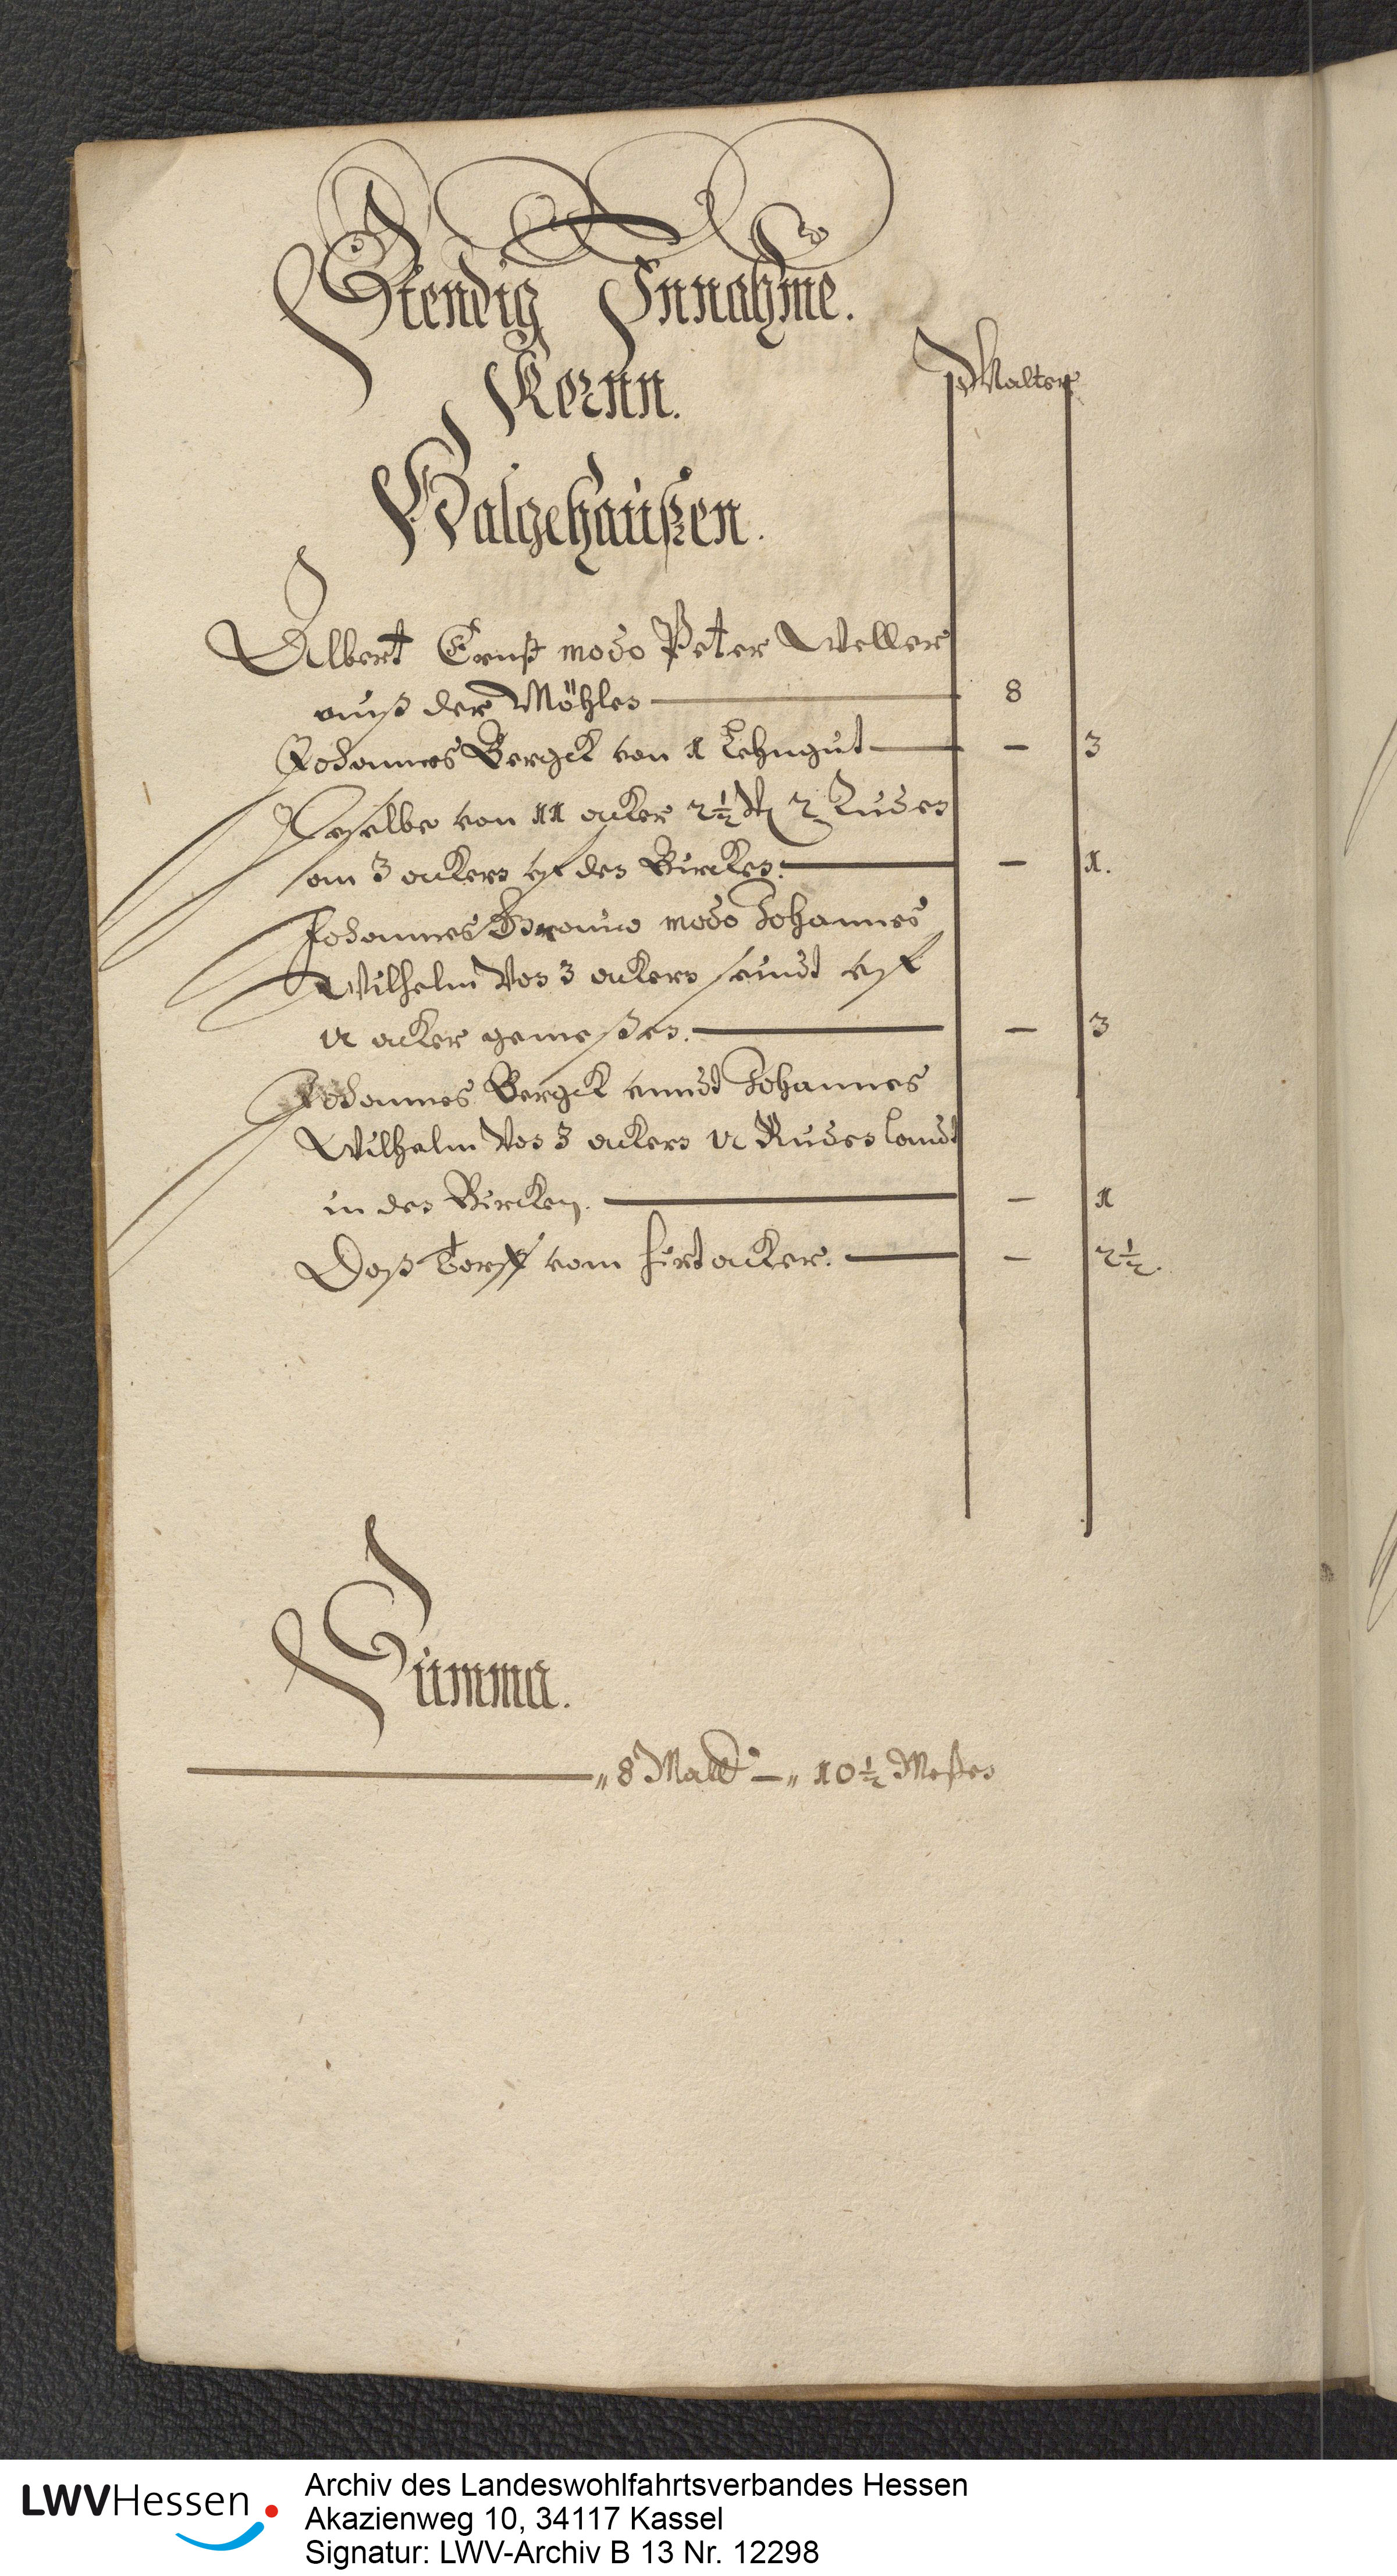 Stendig Innahme.
Kornn.
Malter
Halgehaußen.
Albert Ernst modo Peter Weller
auß der Möhlen 8
Johannes Bergck von 1 Lehngut — 3
Deßelbe von 11 acker 2½ 2 Ruden
am 3 ackern uf den Bircken. — 1.
Johannes Braune modo Johannes
Wilhelm Von 3 ackern seindt uf
acker gemeßen. — 3
Johannes Bergck unndt Johannes
Wilhelm Von 3 ackern Ruden landt
in den Bircken. — 1
Daß Dorff vom Hirtacker. — 2½.
Summa.
„ 8 Malt — „ 10½ Meßen
LWVHessen
Archiv des Landeswohlfahrtsverbandes Hessen
Akazienweg 10, 34117 Kassel
Signatur: LWV-Archiv B 13 Nr. 12298